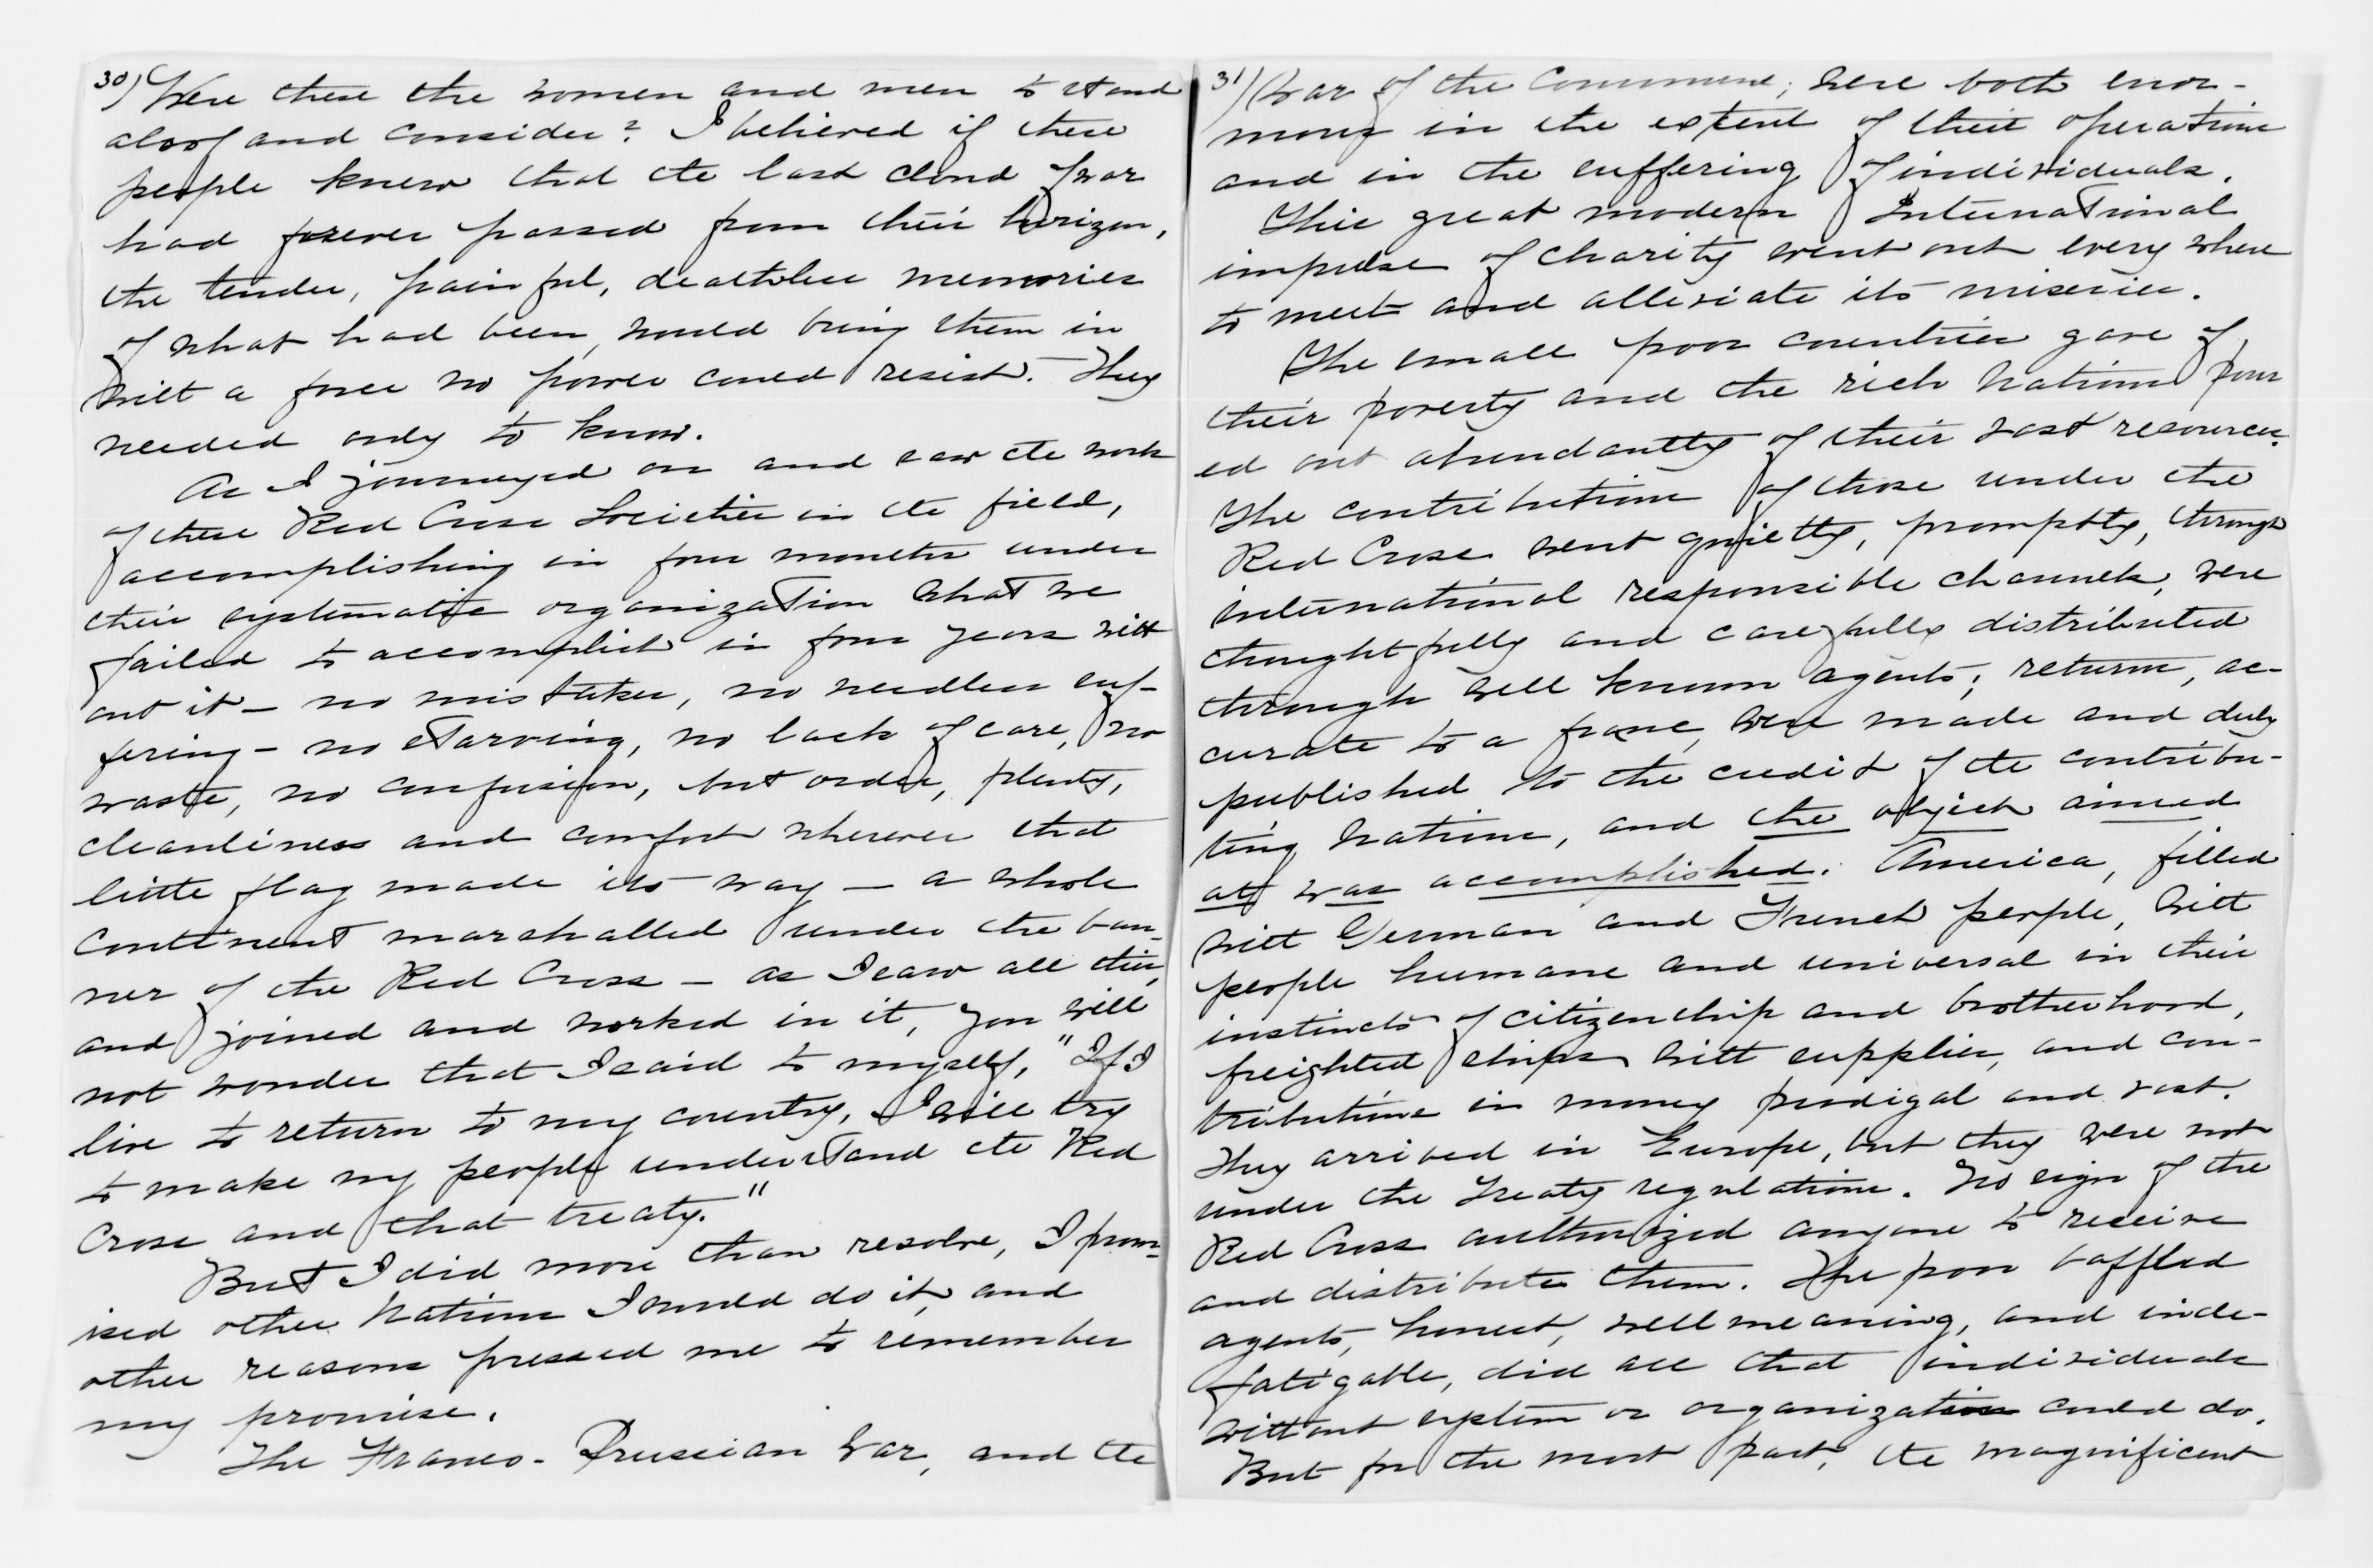 30) Were these the women and men to stand
aloof and consider? I believed if these
people knew that the last cloud of war
had forever passed from their horizon,
the tender, painful, deathless memories
of what had been, would bring them in
with a force no power could resist. They
needed only to know.
As I journeyed on and saw the work
of these Red Cross Societies in the field,
accomplishing in four months under
their systematic organization what we
failed to accomplish in four years with
out it — no mistakes, no needless suf-
fering — no starving, no lack of care, no
waste, no confusion, but order, plenty,
cleanliness and comfort wherever that
little flag made its way — a whole
continent marshalled under the ban-
ner of the Red Cross — as I saw all this,
and joined and worked in it, you will
not wonder that I said to myself, "If I
live to return to my country, I will try
to make my people understand the Red
Cross and that treaty."
But I did more than resolve, I prom-
ised other Nations I would do it, and
other reasons pressed me to remember
my promise.
The Franco-Prussian War, and the
31) War of the Commune; were both enor-
mous in the extent of their operations
and in the suffering of individuals.
This great modern International
impulse of charity went out every where
to meet and alleviate its miseries.
The small poor countries gave of
their poverty and the rich Nations pour
ed out abundantly of their vast resources.
The contributions of those under the
Red Cross went quietly, promptly, through
international responsible channels, were
thoughtfully and carefully distributed
through well known agents; returns, ac-
curate to a franc, were made and duly
published to the credit of the contribu-
ting Nations, and the object aimed
at was accomplished. America, filled
with German and French people, with
people humane and universal in their
instincts of citizenship and brotherhood,
freighted ships with supplies, and con-
tributions in money prodigal and vast.
They arrived in Europe, but they were not
under the treaty regulations. No sign of the
Red Cross authorized anyone to receive
and distribute them. The poor baffled
agents, honest, well meaning, and inde-
fatigable, did all that individuals
without system or organization could do.
But for the most part, the magnificent